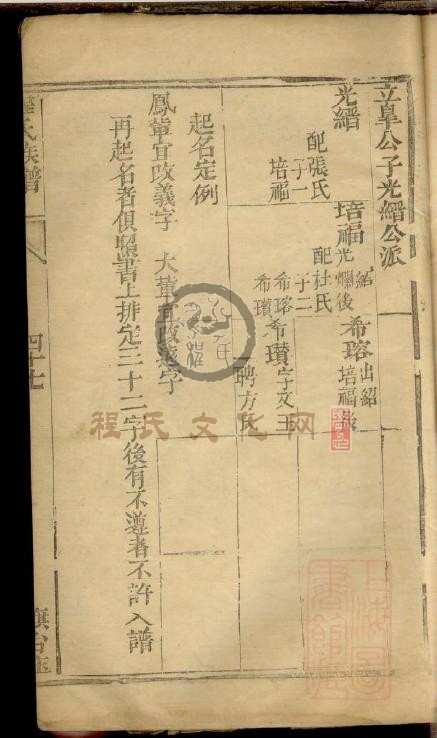 立阜公子光縉公派
光縉
配張氏
子一
培福
培福
紹
光爛後
配杜氏
子二
希瑢
希瓚
希瑢
出紹
培福後
希瓚
字文玉
聘方氏
起名定例
鳳輩宜改義字 大輩宜改
字
再起名者俱照書上排定三十二字後有不遵者不許入譜
氏族譜
四十七
程氏文化网
上海圖書館藏